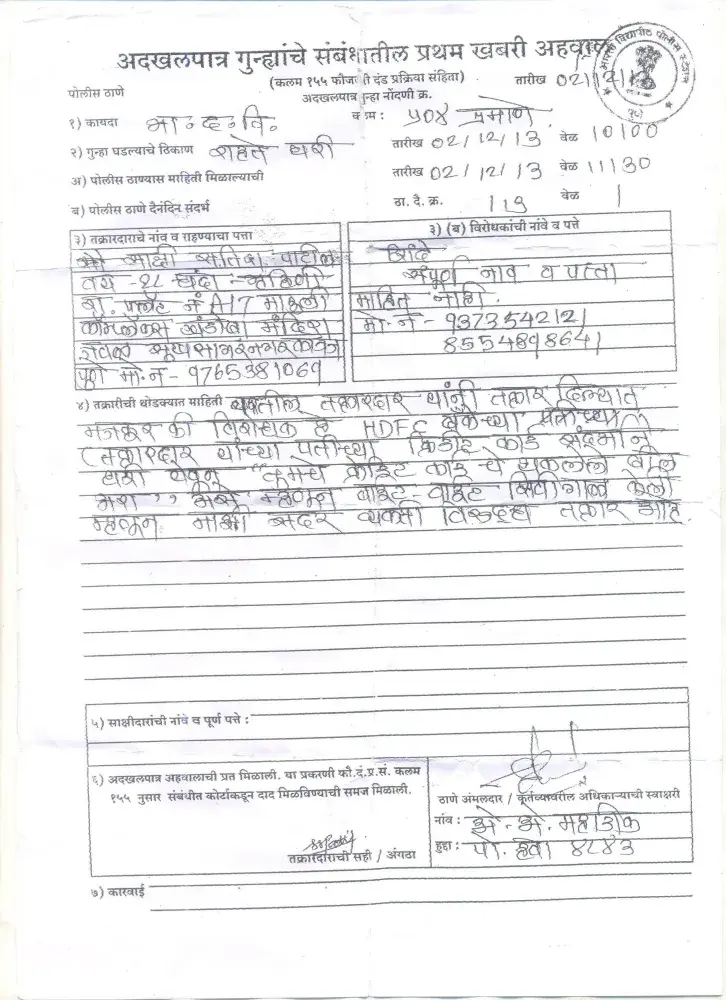 अदखलपात्र गुन्ह्यांचे संबंधातील प्रथम खबरी अहवाल
(कलम १५५ फौजदारी दंड प्रक्रिया संहिता) तारीख 02/12/13
पोलीस ठाणे
अदखलपात्र गुन्हा नोंदणी क्र.
१) कायदा भा.द.वि. कलम : ५०४ प्रमाणे
२) गुन्हा घडल्याचे ठिकाण राहते घरी तारीख 02/12/13 वेळ 10/00
अ) पोलीस ठाण्यास माहिती मिळाल्याची तारीख 02/12/13 वेळ 11/30
ब) पोलीस ठाणे दैनंदिन संदर्भ ठा. दै. क्र. वेळ
३) तक्रारदाराचे नांव व राहण्याचा पत्ता
३) (ब) विरोधकांची नांवे व पत्ते
पाटील
वय - २८ धंदा - गृहिणी
रा. फ्लॅट नं A/7 माऊली
कॉम्प्लेक्स खंडोबा मंदिरा
जवळ
पुणे मो.नं - 9765381069
शिंदे
संपूर्ण नाव व पत्ता
माहित नाही.
मो.नं - 9373542121
8554898641
४) तक्रारीची थोडक्यात माहिती यातील तक्रारदार यांनी तक्रार दिल्यात
मजकूर की विरोधक हे HDFC बँकेच्या
(तक्रारदार यांच्या पतीच्या क्रेडीट कार्ड संदर्भाने
घरी येवून "तुमचे क्रेडिट कार्ड चे थकलेले बील
भरा" असे म्हणून वाईट वाईट शिवीगाळ केली
म्हणून माझी सदर व्यक्ती विरुद्ध तक्रार आहे.
५) साक्षीदारांची नांवे व पूर्ण पत्ते :
६) अदखलपात्र अहवालाची प्रत मिळाली. या प्रकरणी फौ.दं.प्र.सं. कलम
१५५ नुसार संबंधीत कोर्टाकडून दाद मिळविण्याची समज मिळाली.
तक्रारदाराची सही / अंगठा
ठाणे अंमलदार / कर्तव्यावरील अधिकाऱ्याची स्वाक्षरी
नांव : अे. अे. महाडिक
हुद्दा : पो. हवा ४८४३
७) कारवाई